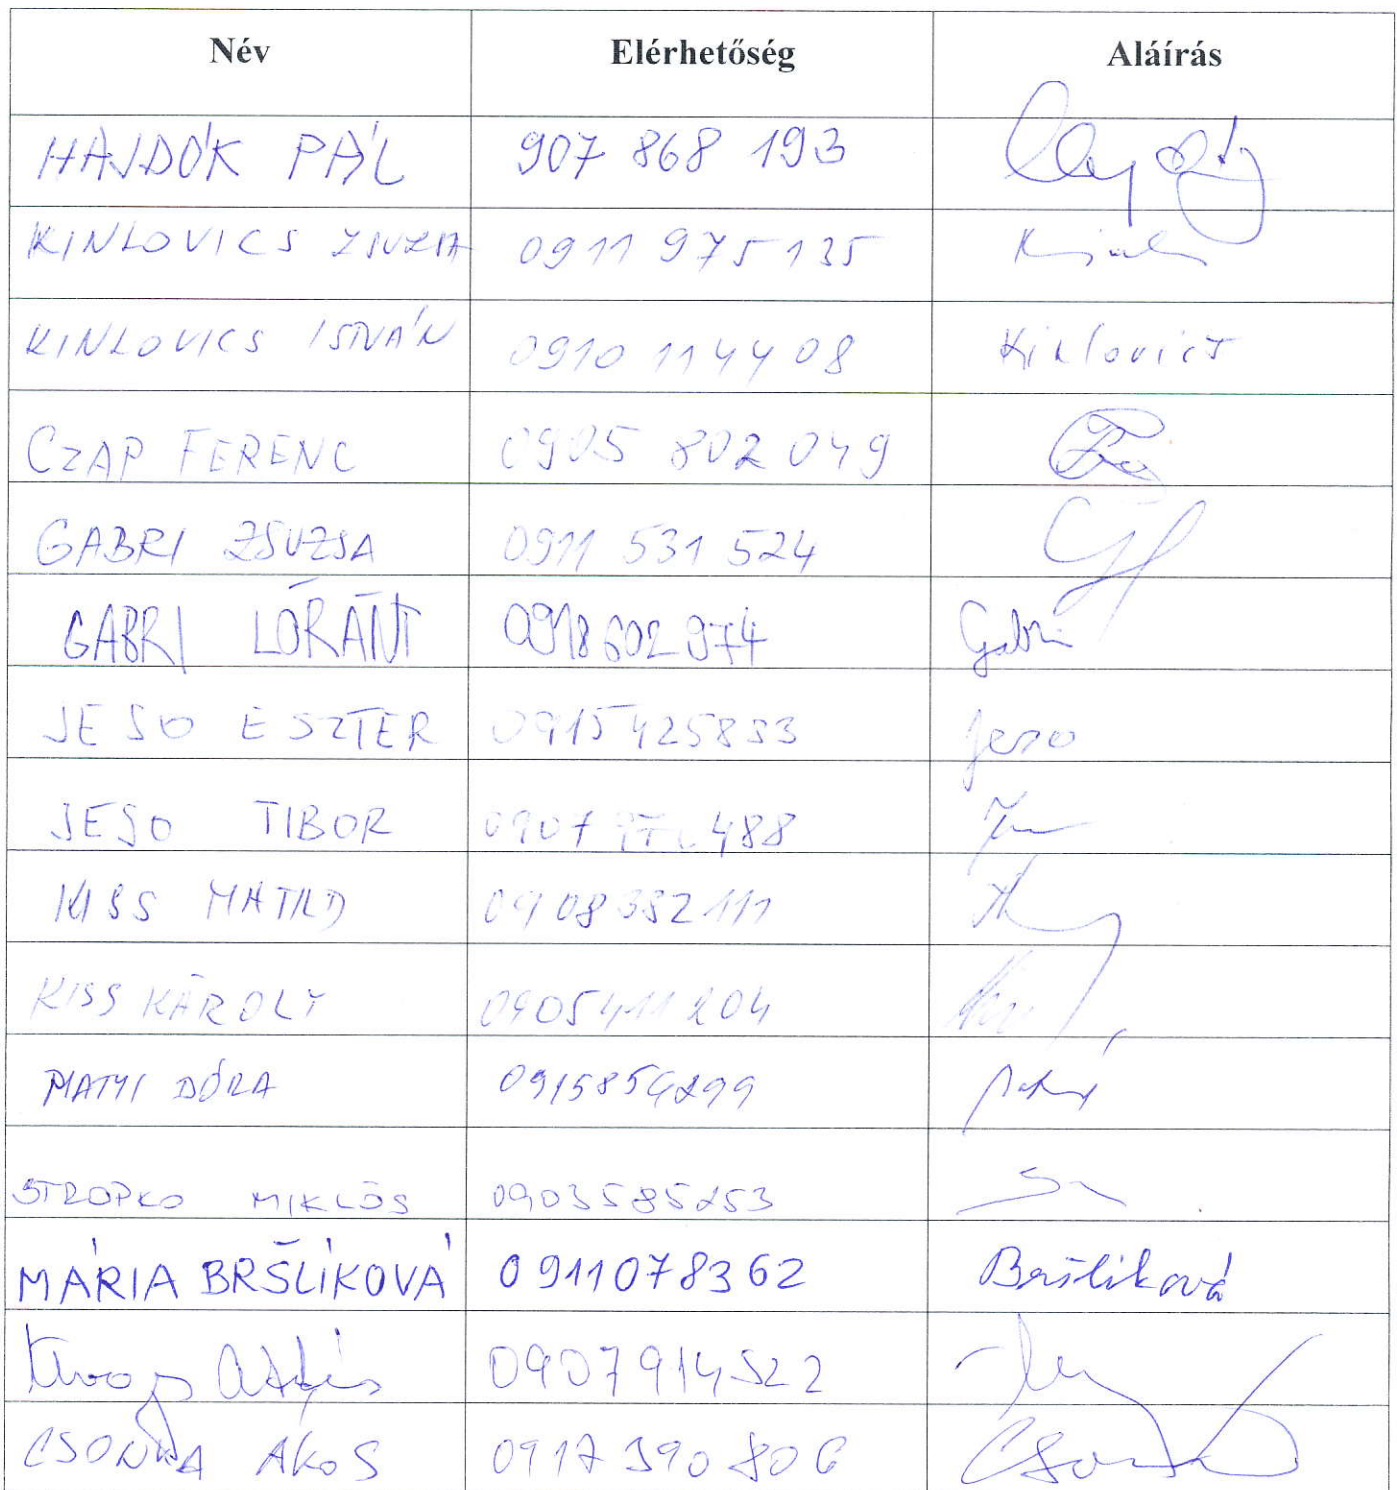 Név Elérhetőség Aláírás
HAJDÓK PÁL 907 868 193
KINLOVICS ZSUZSA 0911 975 135
KINLOVICS ISTVÁN 0910 114408 Kinlovics
CZAP FERENC 0905 802 049
GABRI ZSUZSA 0911 531 524
GABRI LÓRÁNT 0918602974 Gabri
JESO ESZTER 0915425833 Jeso
JESO TIBOR 0907 488
KISS MATILD 0908382111
KISS KÁROLY 0905411204
MATYI DÓRA
STROPKO MIKLÓS 0903585253
MÁRIA BRŠLÍKOVÁ 0911078362 Bršlíková
0907914522
CSONKA ÁKOS 0917 390 806